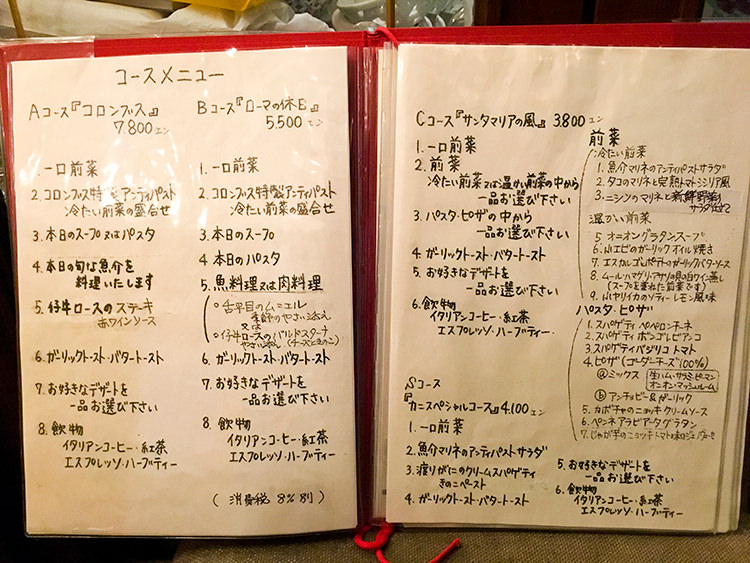 コースメニュー
Aコース『コロンブス』
7.800エン
1. 一口前菜
2. コロンブス特製アンティパスト
冷たい前菜の盛合せ
3. 本日のスープ又はパスタ
4. 本日の旬な魚介を
料理いたします
5. 仔牛ロースのステーキ
赤ワインソース
6. ガーリックトースト・バタートースト
7. お好きなデザートを
一品お選び下さい
8. 飲物
イタリアンコーヒー・紅茶
エスプレッソ・ハーブティー
Bコース『ローマの休日』
5.500エン
1. 一口前菜
2. コロンブス特製アンティパスト
冷たい前菜の盛合せ
3. 本日のスープ
4. 本日のパスタ
5. 魚料理又は肉料理
○舌平目のムニエル
季節のやさい添え
又は
○仔牛ロースのバルドスターナ
やさい添え (チーズときのこ)
6. ガーリックトースト・バタートースト
7. お好きなデザートを
一品お選び下さい
8. 飲物
イタリアンコーヒー・紅茶
エスプレッソ・ハーブティー
(消費税 8% 別)
Cコース『サンタマリアの風』3.800エン
1. 一口前菜
2. 前菜
冷たい前菜又は温かい前菜の中から
一品お選び下さい
3. パスタ・ピザの中から
一品お選び下さい
4. ガーリックトースト・バタートースト
5. お好きなデザートを
一品お選び下さい
6. 飲物
イタリアンコーヒー・紅茶
エスプレッソ・ハーブティー
前菜
冷たい前菜
1. 魚介マリネのアンティパストサラダ
2. タコのマリネと完熟トマトシシリア風
3. ニシンのマリネと新鮮野菜の
サラダ仕立て
温かい前菜
5 オニオングラタンスープ
6. 小エビのガーリックオイル焼き
7. エスカルゴとポテトのガーリックバターソース
8. ムール・ハマグリ・アサリの貝の白ワイン蒸し
(スープを兼ねた前菜です)
9. 小ヤリイカのソティーレモン風味
パスタ・ピザ
1. スパゲティ ペペロンチーネ
2. スパゲティ ボンゴレビアンコ
3. スパゲティバジリコ トマト
4. ピザ(ゴーダーチーズ100%)
ⓐミックス 生ハム・サラミ・ピーマン
オニオン・マッシュルーム
ⓑ アンチョビー&ガーリック
5. カボチャのニョッキ クリームソース
6. ペンネアラビアータグラタン
7. じゃが芋のニョッキトマト味
Sコース
『カニスペシャルコース』4.100エン
1. 一口前菜
2. 魚介マリネのアンティパストサラダ
3. 渡りがにのクリームスパゲティ
きのこペースト
4. ガーリックトースト・バタートースト
5. お好きなデザートを
一品お選び下さい
6. 飲物
イタリアンコーヒー・紅茶
エスプレッソ・ハーブティー